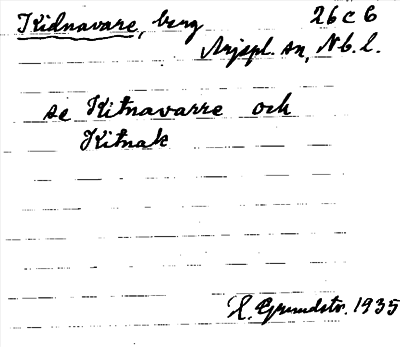 Kidnavare, berg 26 C 6
Arjepl. sn, Nb. l.
se Kitnavarre och
Kitnak
H. Grundstr. 1935